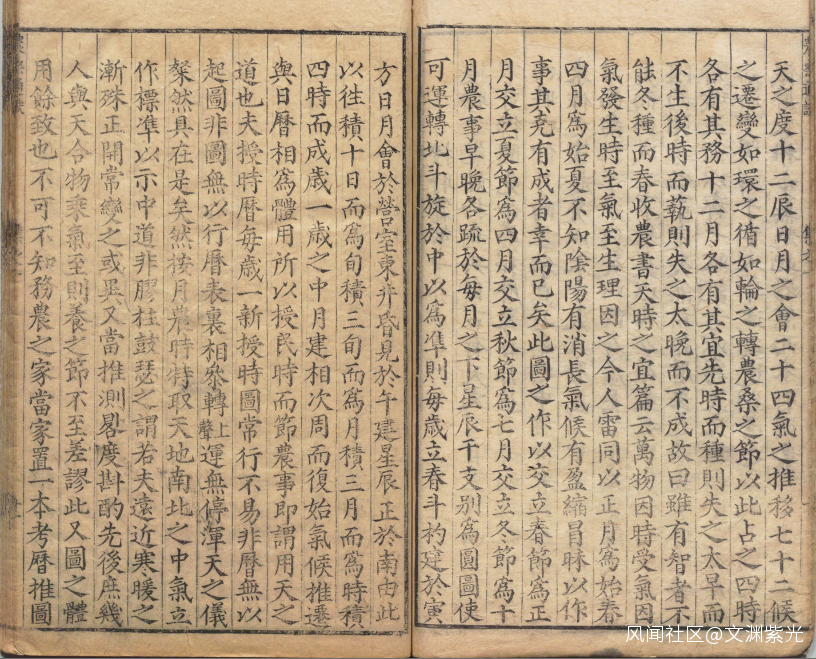 天之度十二辰日月之會二十四氣之推移七十二候
之遷變如環之循如輪之轉農桑之節以此占之四時
各有其務十二月各有其宜先時而種則失之太早而
不生後時而蓺則失之太晚而不成故曰雖有智者不
能冬種而春收農書天時之宜篇云萬物因時受氣因
氣發生時至氣至生理因之今人雷同以正月爲始春
四月爲始夏不知陰陽有消長氣候有盈縮冒昧以作
事其克有成者幸而已矣此圖之作以交立春節爲正
月交立夏節爲四月交立秋節爲七月交立冬節爲十
月農事早晚各疏於每月之下星辰干支別爲圓圖使
可運轉北斗旋於中以爲凖則每歲立春斗杓建於寅
方日月會於營室東井昏見於午建星辰正於南由此
以往積十日而爲旬積三旬而爲月積三月而爲時積
四時而成歲一歲之中月建相次周而復始氣候推遷
與日曆相爲體用所以授民時而節農事即謂用天之
道也夫授時曆每歲一新授時圖常行不易非曆無以
起圖非圖無以行曆表裏相參轉聲上運無停渾天之儀
粲然具在是矣然按月農時特取天地南北之中氣立
作標凖以示中道非膠柱鼓瑟之謂若夫遠近寒暖之
漸殊正開常變之或異又當推測晷度斟酌先後庶幾
人與天合物乘氣至則養之節不至差謬此又圖之體
用餘致也不可不知務農之家當家置一本考曆推圖
風闻社区@文渊紫光